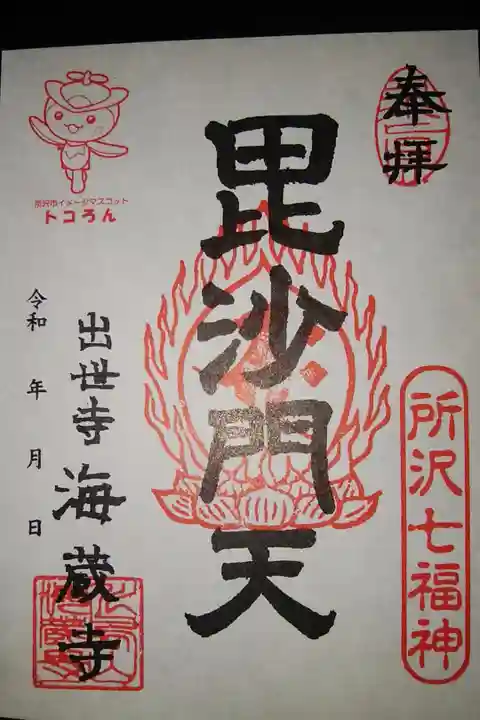 奉拝
所沢七福神
毘沙門天
所沢市イメージマスコット
トコろん
出世寺 海蔵寺
令和 年 月 日